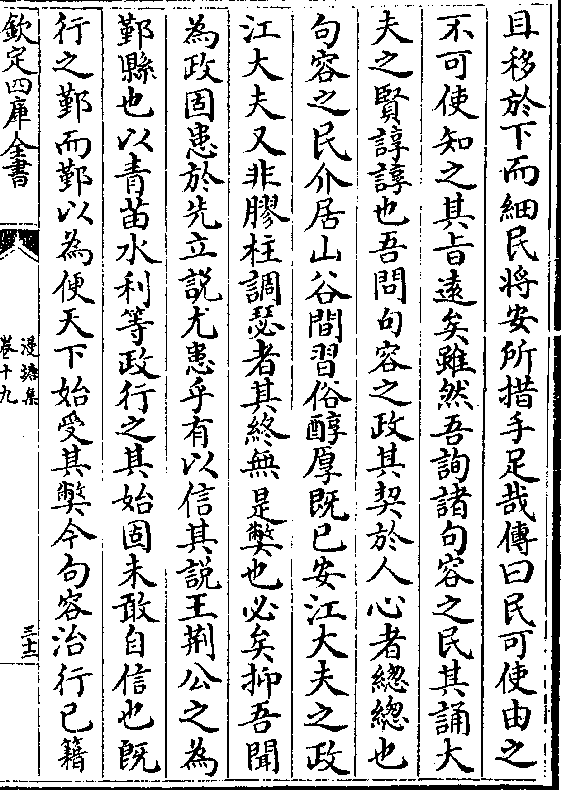 且移於下而細民将安所措手足哉傳曰民可使由之
不可使知之其旨遠矣雖然吾詢諸句容之民其誦大
夫之賢諄諄也吾問句容之政其契於人心者緫緫也
句容之民介居山谷間習俗醇厚既已安江大夫之政
江大夫又非膠柱調瑟者其終無是獘也必矣抑吾聞
為政固患於先立説尤患乎有以信其説王荆公之為
鄞縣也以青苗水利等政行之其始固未敢自信也既
行之鄞而鄞以為便天下始受其獘今句容治行已籍
欽定四庫全書
漫塘集
卷十九
三十二